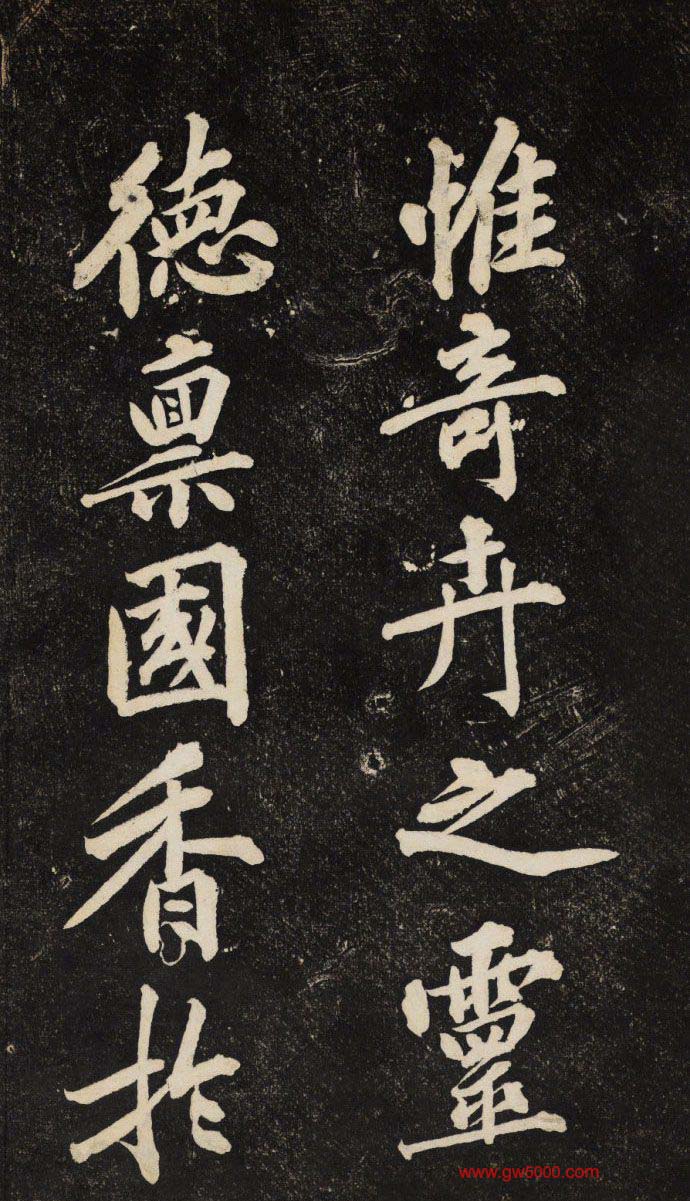 惟奇卉之靈
德禀國香於
www.gw6000.com